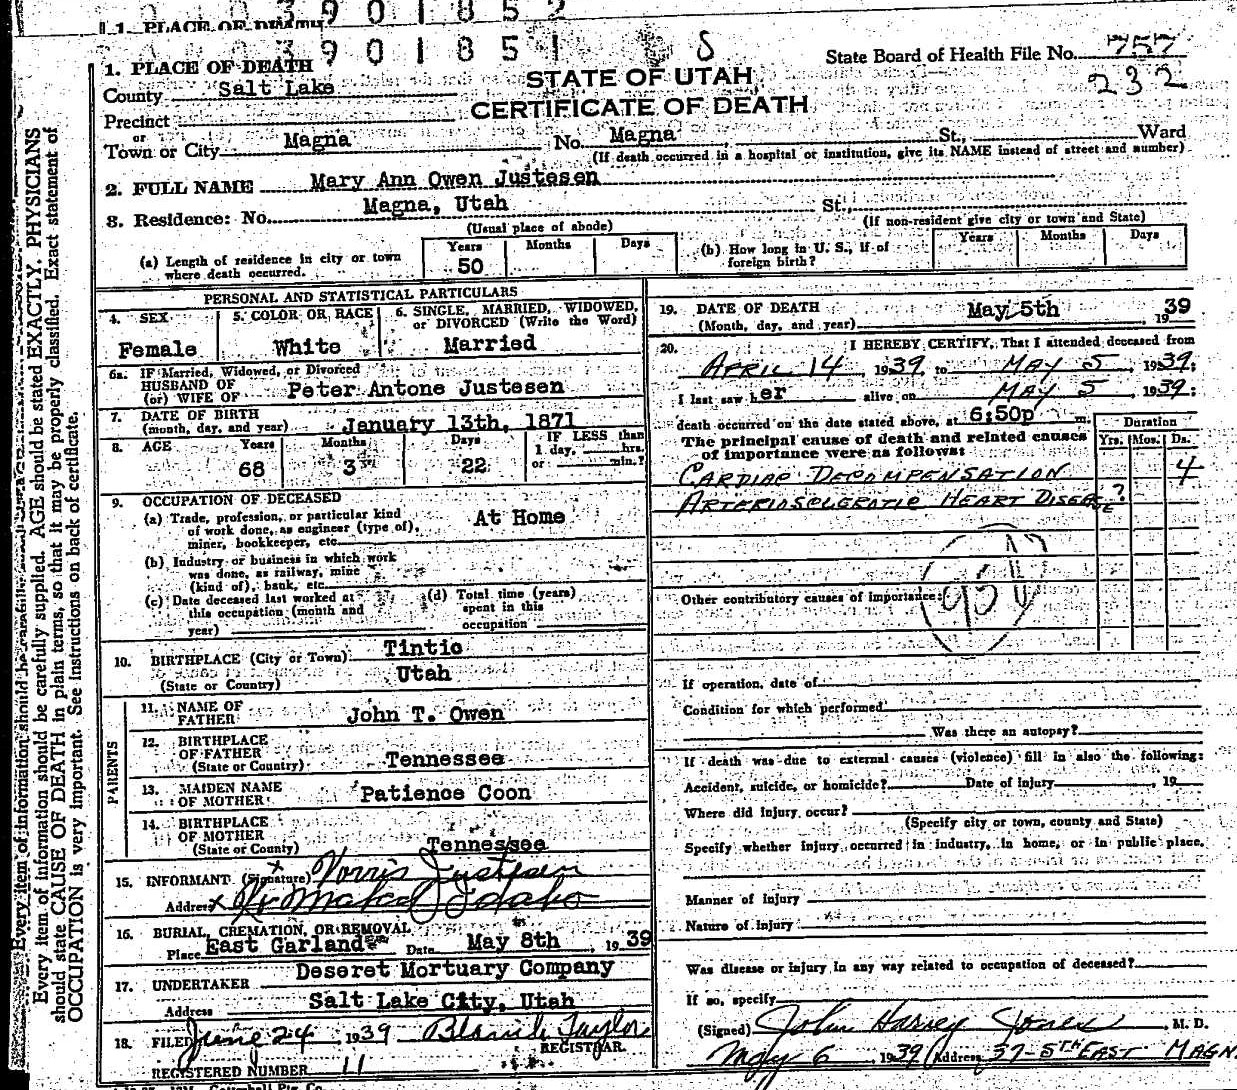 1. PLACE OF DEATH
3901852
3901851
State Board of Health File No. 757
232
1. PLACE OF DEATH
STATE OF UTAH
County Salt Lake
CERTIFICATE OF DEATH
Precinct
or
Town or City Magna No. Magna St., Ward
(If death occurred in a hospital or institution, give its NAME instead of street and number)
2. FULL NAME Mary Ann Owen Justesen
3. Residence: No. Magna, Utah St.,
(Usual place of abode) (If non-resident give city or town and State)
(a) Length of residence in city or town where death occurred. Years 50 Months Days
(b) How long in U. S., if of foreign birth? Years Months Days
PERSONAL AND STATISTICAL PARTICULARS
4. SEX Female
5. COLOR OR RACE White
6. SINGLE, MARRIED, WIDOWED, or DIVORCED (Write the Word) Married
6a. IF Married, Widowed, or Divorced
HUSBAND OF
(or) WIFE OF Peter Antone Justesen
7. DATE OF BIRTH
(month, day, and year) January 13th, 1871
8. AGE Years 68 Months 3 Days 22 IF LESS than 1 day, hrs. or min.?
9. OCCUPATION OF DECEASED
(a) Trade, profession, or particular kind
of work done, as engineer (type of),
miner, bookkeeper, etc. At Home
(b) Industry or business in which work
was done, as railway, mine
(kind of), bank, etc.
(c) Date deceased last worked at
this occupation (month and
year)
(d) Total time (years)
spent in this
occupation
10. BIRTHPLACE (City or Town) Tintic
(State or Country) Utah
PARENTS
11. NAME OF
FATHER John T. Owen
12. BIRTHPLACE
OF FATHER
(State or Country) Tennessee
13. MAIDEN NAME
OF MOTHER Patience Coon
14. BIRTHPLACE
OF MOTHER
(State or County) Tennessee
15. INFORMANT (Signature) x Norris Justesen
Address x Idaho
16. BURIAL, CREMATION, OR REMOVAL
Place East Garland Date May 8th, 1939
17. UNDERTAKER Deseret Mortuary Company
Address Salt Lake City, Utah
18. FILED June 24, 1939 Taylor
REGISTRAR.
REGISTERED NUMBER 11
19. DATE OF DEATH
(Month, day, and year) May 5th, 1939
20. I HEREBY CERTIFY, That I attended deceased from
APRIL 14, 1939, to MAY 5, 1939;
I last saw her alive on MAY 5, 1939;
death occurred on the date stated above, at 6:50p m.
The principal cause of death and related causes
of importance were as follows:
Duration
Yrs. Mos. Ds.
CARDIAC DECOMPENSATION 4
ARTERIOSCLEROTIC HEART DISEASE ?
Other contributory causes of importance:
If operation, date of
Condition for which performed
Was there an autopsy?
If death was due to external causes (violence) fill in also the following:
Accident, suicide, or homicide? Date of injury, 19
Where did injury occur?
(Specify city or town, county and State)
Specify whether injury occurred in industry, in home, or in public place.
Manner of injury
Nature of injury
Was disease or injury in any way related to occupation of deceased?
If so, specify
(Signed) John Harvey Jones, M. D.
May 6 1939 (Address) 37-5TH EAST MAGN
Every item of information should be carefully supplied. AGE should be stated EXACTLY. PHYSICIANS
should state CAUSE OF DEATH in plain terms, so that it may be properly classified. Exact statement of
OCCUPATION is very important. See instructions on back of certificate.